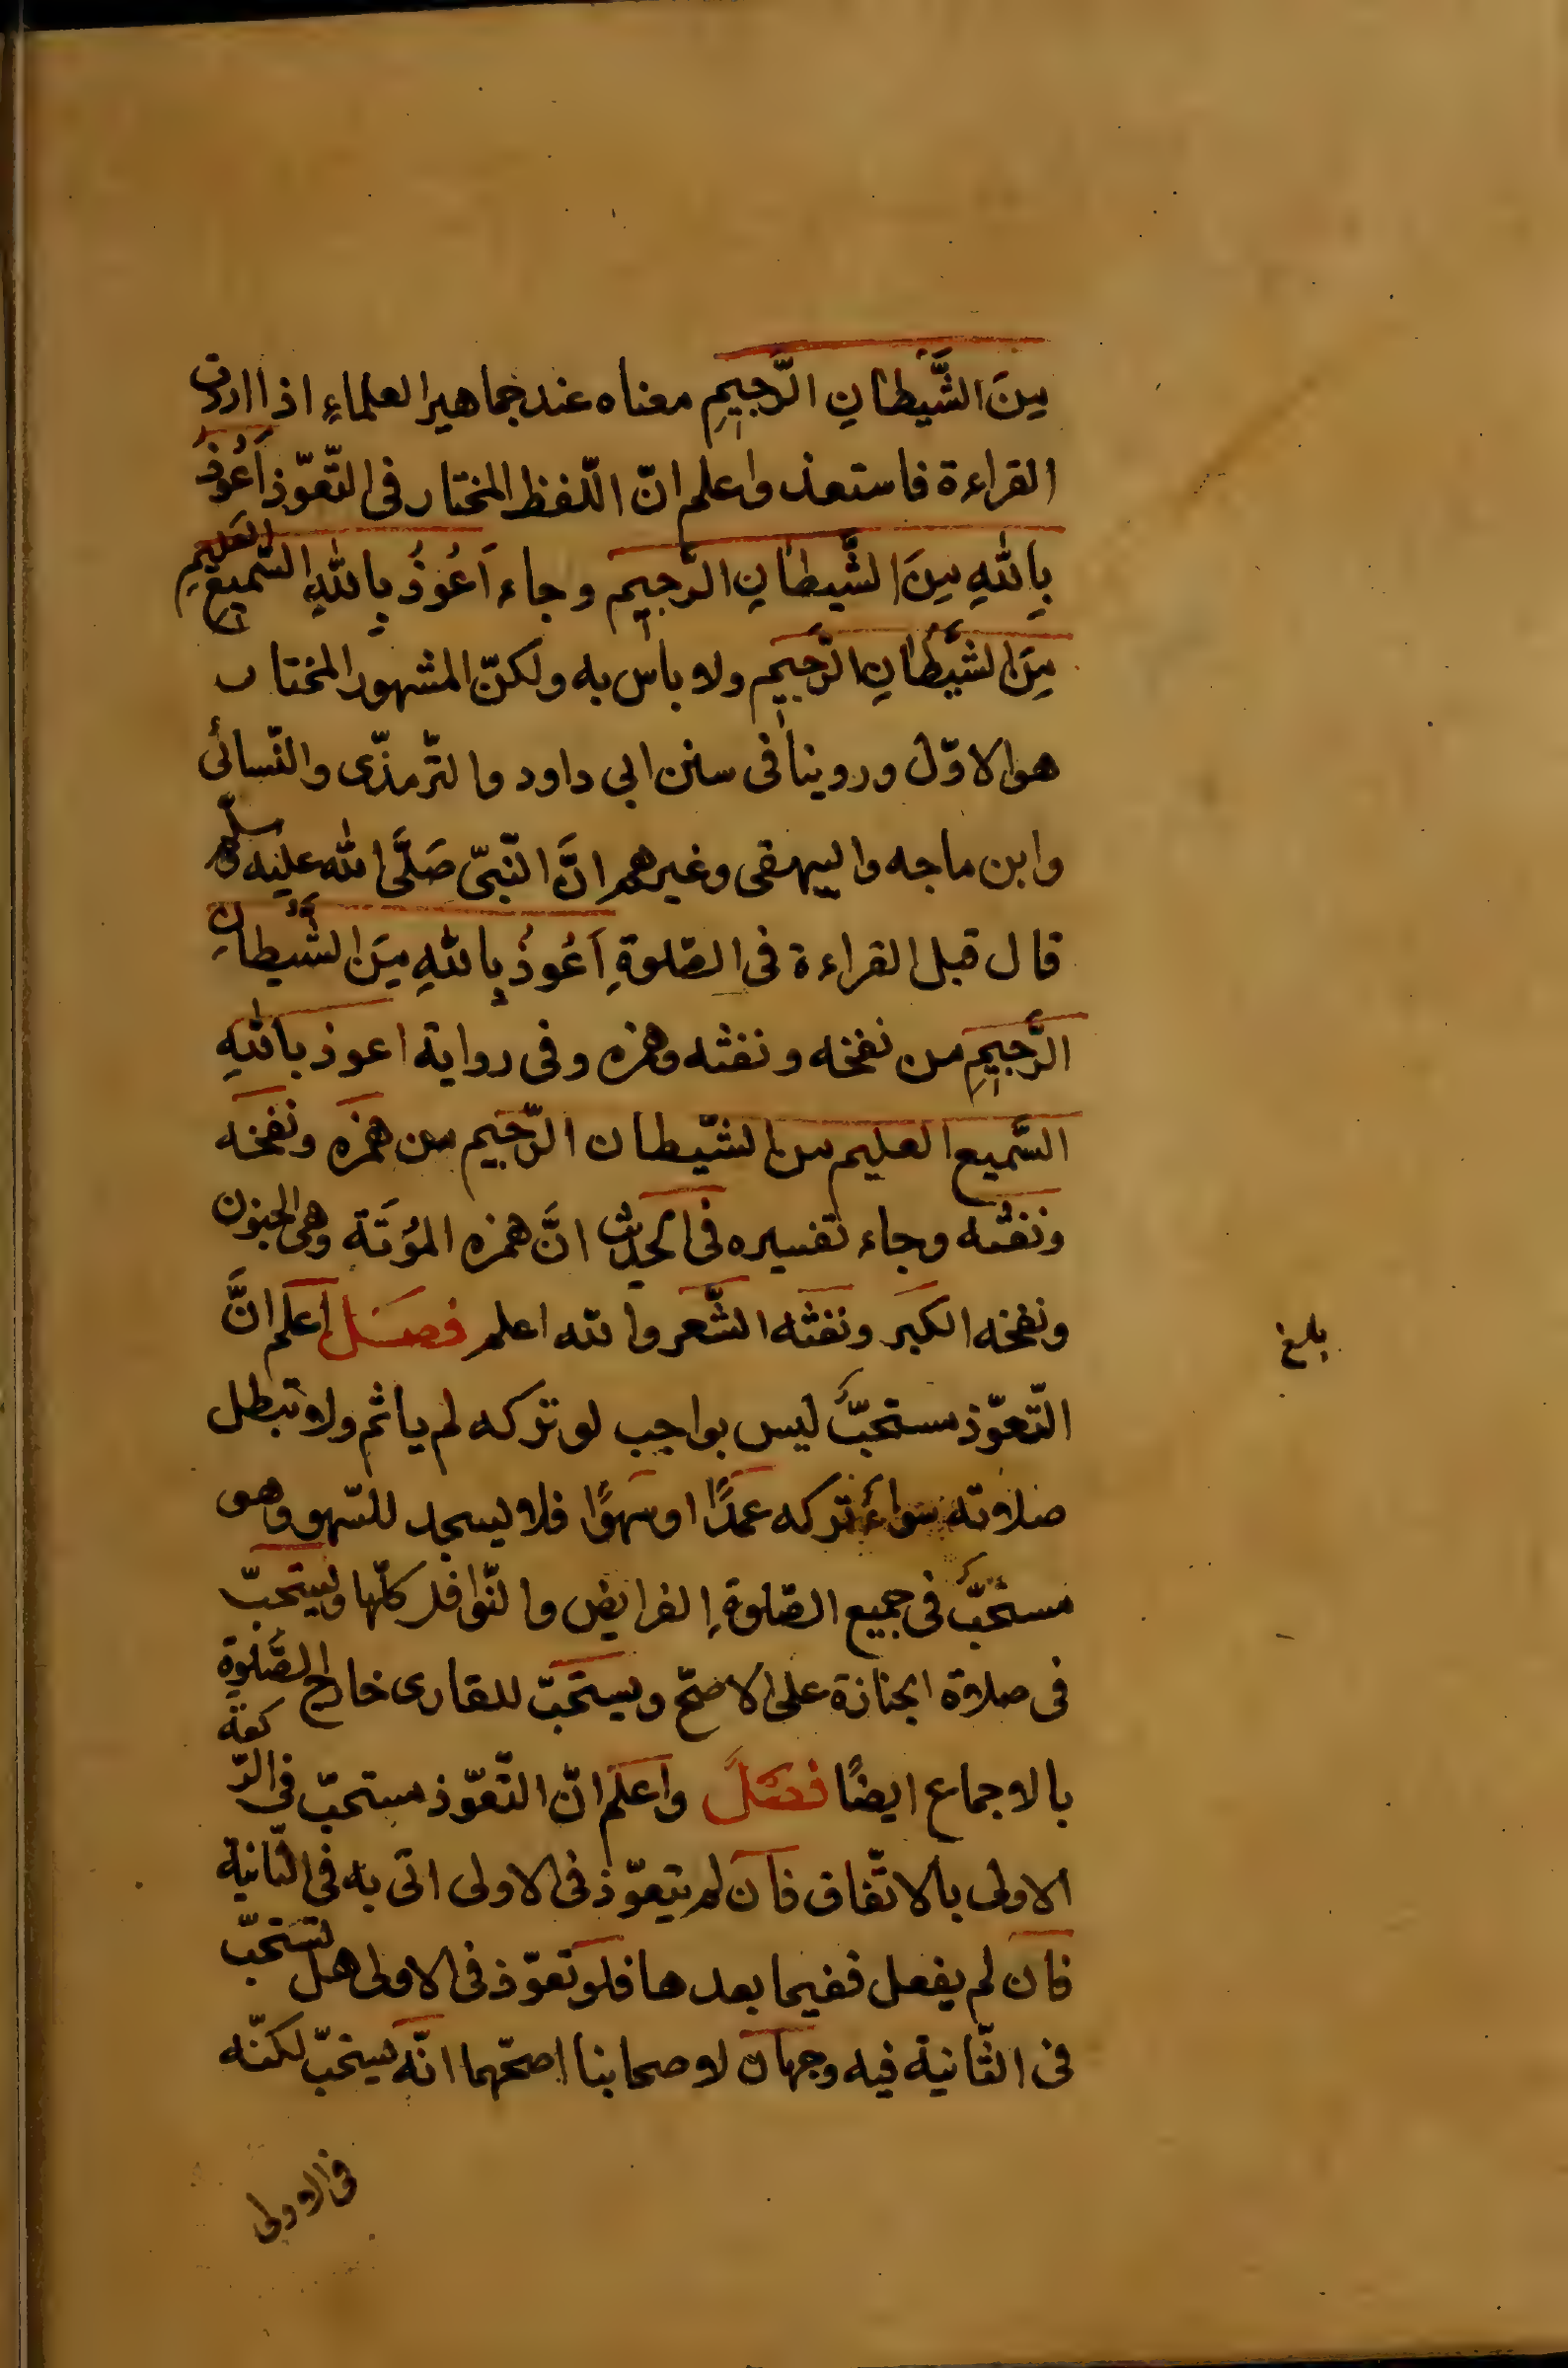 مِنَ الشَّيطانِ الرَّجيمِ معناه عند جماهير العلماءِ اذا اردت
القراءة فاستعذ واعلم انّ اللّفظ المختار فى التّعوّذ اَعُوذُ
بِاللهِ مِنَ الشَّيطانِ الرَّجيم وجاء اَعُوذُ بِاللهِ السَّميعِ العَليمِ
مِنَ الشَّيطانِ الرَّجيم ولا باس به ولكنّ المشهور المختار
هو الاوّل وروينا فى سنن ابى داود والتّرمذّى والنّسائى
وابن ماجه والبيهقى وغيرهم انَّ النّبىّ صَلَّى الله عليه وسلّم
قال قبل القراءة فى الصّلوةِ اَعُوذُ بِاللهِ مِنَ الشَّيطانِ
الرَّجيمِ من نفخه ونفثه وهمزه وفى رواية اعوذ باللهِ
السَّميع العليم من الشّيطان الرّجيم من همزه ونفخه
ونفثه وجاء تفسيره فى الحديث انَّ همزه المؤتَة وهى الجنون
ونفخه الكبر ونفثه الشَّعر والله اعلم فصل اعلم انَّ
التّعوّذ مستحبٌّ ليس بواجب لو تركه لم ياثم ولا تبطل
صلاته سواء تركه عمدًا او سهوًا فلا يسجد للسّهو وهو
مستحبٌّ فى جميع الصّلوةِ الفرايض والنّوافل كلّها ويستحبّ
فى صلاة الجنازة على الاصحّ ويستحبّ للقارى خارج الصَّلوة
بالاجماع ايضًا فصل واعلم انّ التّعوّذ مستحبّ فى الرّكعة
الاولى بالاتّفاق فان لم يتعوّذ فى الاولى اتى به فى الثّانية
فان لم يفعل ففيما بعدها فلو تعوّذ فى الاولى هل تستحبّ
فى الثّانية فيه وجهان لاصحابنا اصحّهما انّه يستحبّ لكنّه
فى الاولى
بلغ